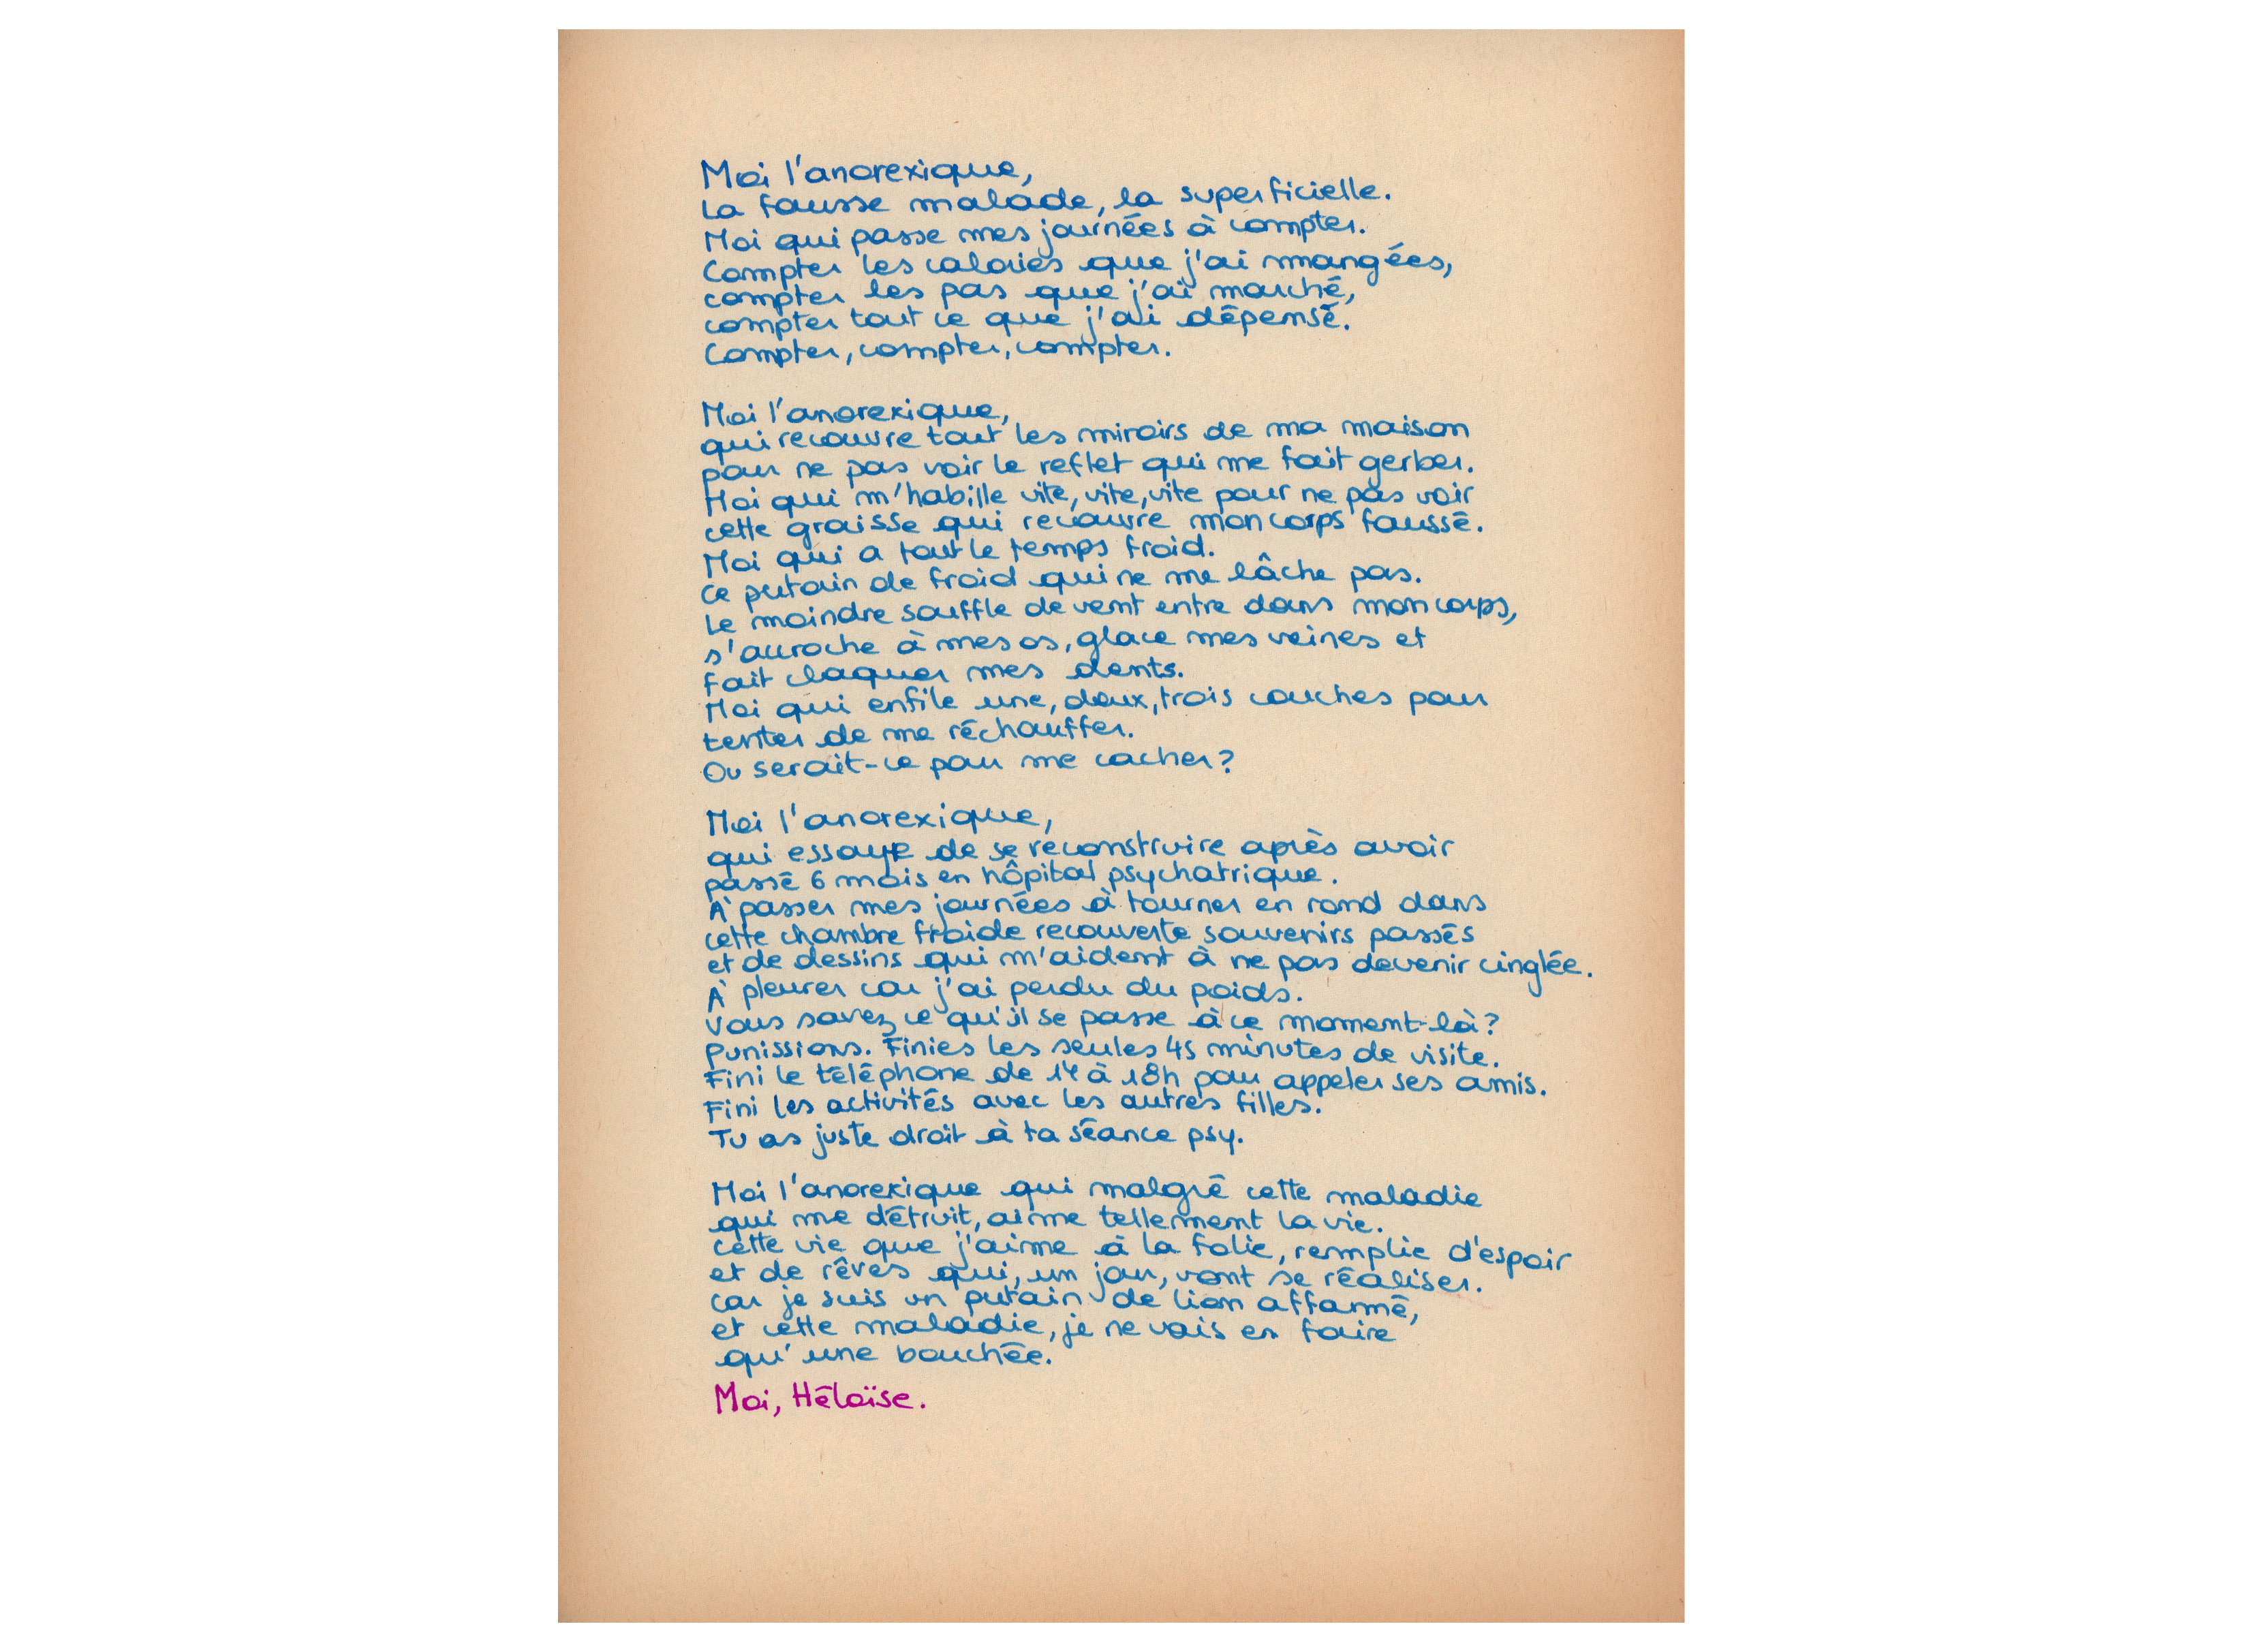 Moi l'anorexique,
La fausse malade, la superficielle.
Moi qui passe mes journées à compter.
Compter les calories que j'ai mangées,
compter les pas que j'ai marché,
compter tout ce que j'ai dépensé.
Compter, compter, compter.
Moi l'anorexique,
qui recouvre tout les miroirs de ma maison
pour ne pas voir le reflet qui me fait gerber.
Moi qui m'habille vite, vite, vite pour ne pas voir
cette graisse qui recouvre mon corps faussé.
Moi qui a tout le temps froid.
Ce putain de froid qui ne me lâche pas.
Le moindre souffle de vent entre dans mon corps,
s'accroche à mes os, glace mes veines et
fait claquer mes dents.
Moi qui enfile une, deux, trois couches pour
tenter de me réchauffer.
Ou serait-ce pour me cacher?
Moi l'anorexique,
qui essaye de se reconstruire après avoir
passé 6 mois en hôpital psychatrique.
À passer mes journées à tourner en rond dans
cette chambre froide recouverte souvenirs passés
et de dessins qui m'aident à ne pas devenir cinglée.
À pleurer car j'ai perdu du poids.
Vous savez ce qu'il se passe à ce moment-là?
Punissions. Finies les seules 45 minutes de visite.
Fini le téléphone de 14 à 18h pour appeler ses amis.
Fini les activités avec les autres filles.
Tu as juste droit à ta séance psy.
Moi l'anorexique qui malgré cette maladie
qui me détruit, aime tellement la vie.
Cette vie que j'aime à la folie, remplie d'espoir
et de rêves qui, un jour, vont se réaliser.
Car je suis un putain de lion affamé,
et cette maladie, je ne vais en faire
qu'une bouchée.
Moi, Héloïse.